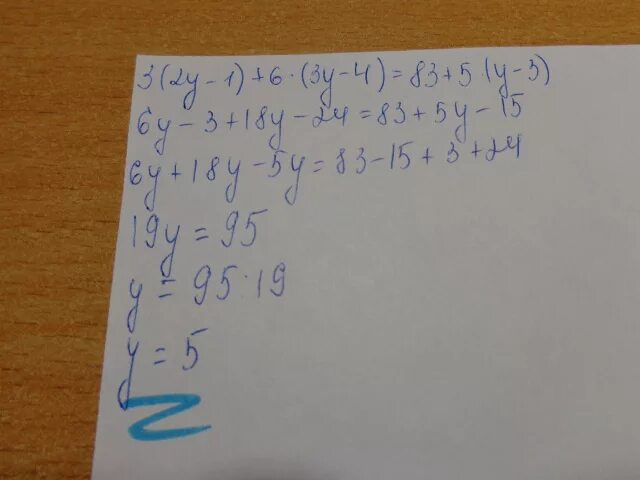 3(2y-1)+6·(3y-4)=83+5·(y-3)
6y-3+18y-24=83+5y-15
6y+18y-5y=83-15+3+24
19y=95
y=95:19
y=5